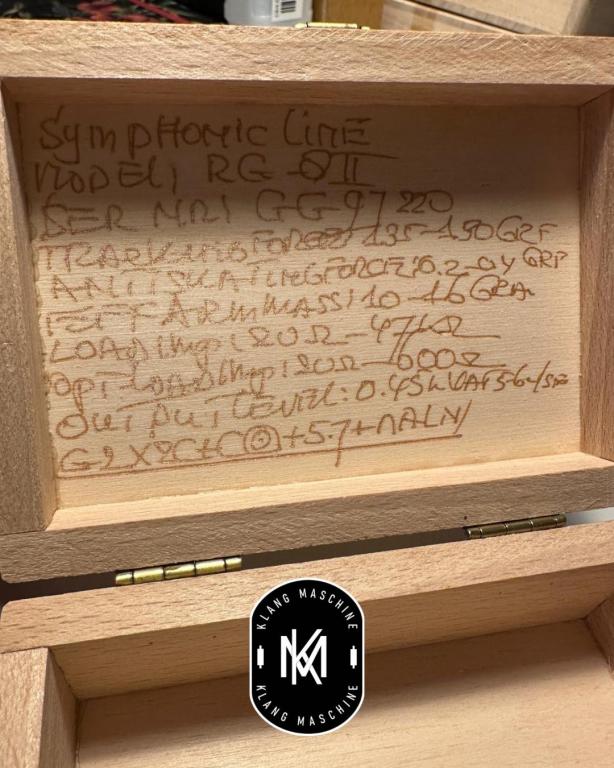 SymPHONIC LINE
MODEL; RG-8II
SER NR; GG-97 220
TRACKING FORCE; 1.35-1.50 GRF
ANTISKATING FORCE; 0.2-0.4 GRF
EFF ARM MASS; 10-16 GRA
LOADImp; 20Ω-47KΩ
OPT-LOADImp; 20Ω-600Ω
OUTPUT LEVEL: 0.45
+5.7+
KLANG MASCHINE
KM
KLANG MASCHINE